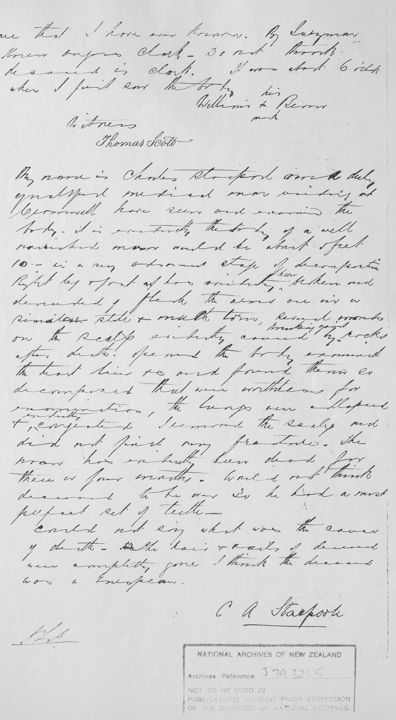 me that I have ever known. By Juryman
knew anyone Clark - Do not think
deceased is Clark. It was about 6 oclock
when I first saw the body
his
William + Brown
mark
Witness
Thomas Scott
My name is Charles Stacpool am a duly
qualified medical man residing at
Cromwell have seen and examined the
body. it is evidently the body of a well
nourished man would be about 5 feet
10 - in a very advanced stage of decomposition
Right leg & foot has evidently been broken and
denuded of flesh the arms are in a
similar state & much torn, several wounds
on the scalp evidently caused by knocking against rocks
after death. opened the body examined
the heart liver &c and found them so
decomposed that were worthless for
examination, the lungs were collapsed
& evidently congested I removed the scalp and
did not find any fracture. The
man has evidently been dead for
three or four months. would not think
deceased to be over 30 he had a most
perfect set of teeth -
Could not say what was the cause
of death - the hair & nails of deceased
were completely gone I think the deceased
was a European.
C A Stacpoole
NATIONAL ARCHIVES OF NEW ZEALAND
Archives Reference
NOT TO BE USED IN
PUBLICATIONS WITHOUT PRIOR PERMISSION
OF THE DIRECTOR OF NATIONAL ARCHIVES.